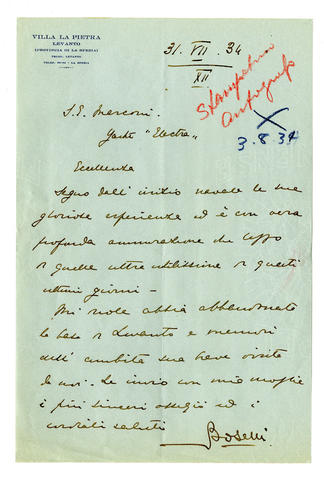 VILLA LA PIETRA
LEVANTO
(PROVINCIA DI LA SPEZIA)
31. VII . 34
XII
Stampatura
autografo
X
3.8.34
S. E. Marconi.
Yacht "Electra"
Eccellenza
Seguo dall' inizio navale le sue
gloriose esperienze ed è con vera
profonda ammirazione che
quelle ultre utilissime questi
ultimi giorni –
Mi vuole abbia abbandonato
la base Levanto e memori
dell' ambita sua breve visita
da noi. Le invio con mia moglie
i più sinceri ossequi ed i
cordiali saluti
Boselli